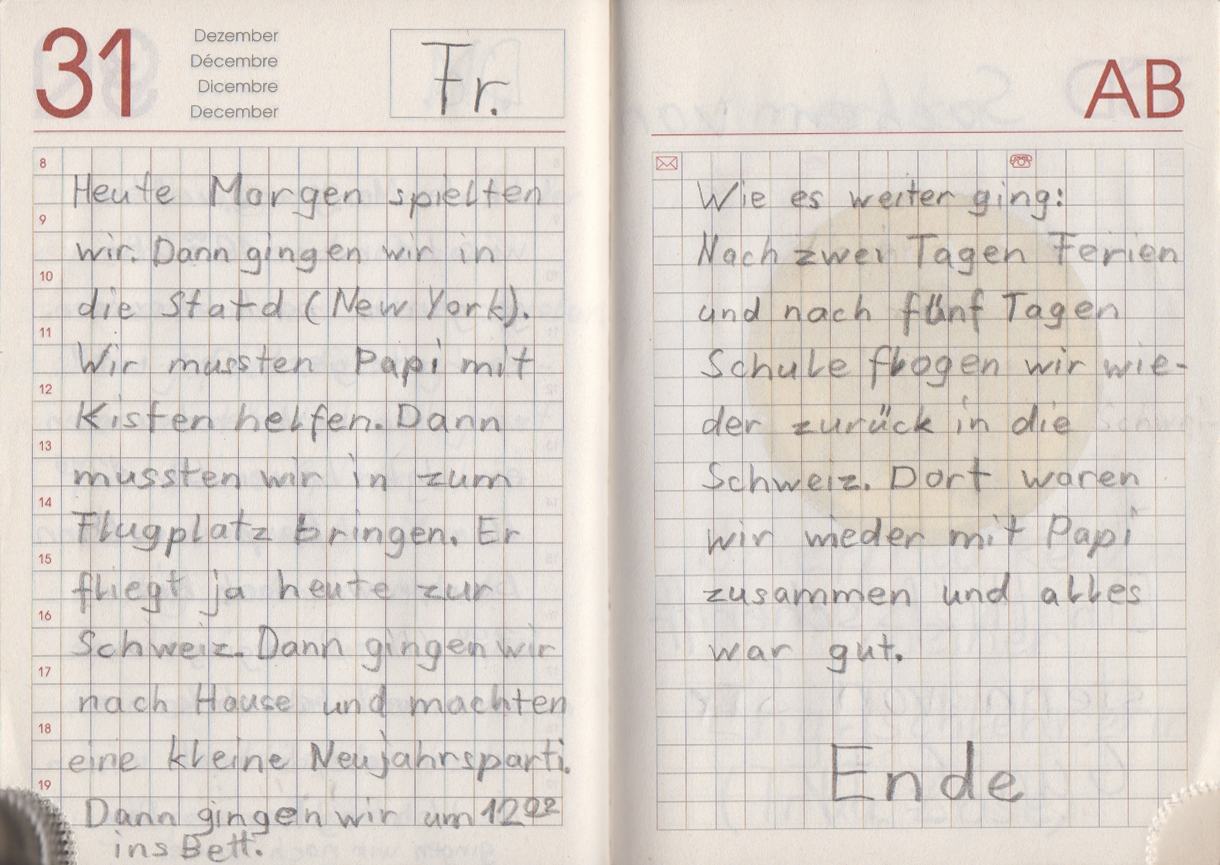 31
Dezember
Décembre
Dicembre
December
Fr.
8
9
10
11
12
13
14
15
16
17
18
19
Heute Morgen spielten
wir. Dann gingen wir in
die Statd (New York).
Wir mussten Papi mit
Kisten helfen. Dann
mussten wir in zum
Flugplatz bringen. Er
fliegt ja heute zur
Schweiz. Dann gingen wir
nach Hause und machten
eine kleine Neujahrsparti.
Dann gingen wir um 12
ins Bett.
AB
Wie es weiter ging:
Nach zwei Tagen Ferien
und nach fünf Tagen
Schule flogen wir wie-
der zurück in die
Schweiz. Dort waren
wir wieder mit Papi
zusammen und alles
war gut.
Ende